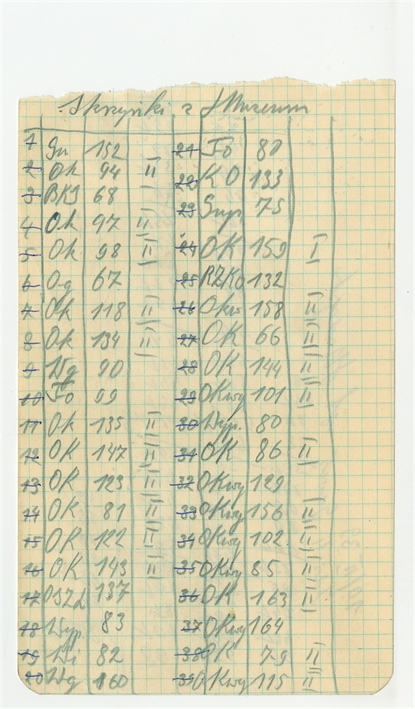 Skrzynki z Muzeum
1 Gu 152
2 Ok 94 II
3 BKJ 68
4 Ok 97 II
5 Ok 98 II
6 Og 67
7 Ok 118 II
8 Ok 134 II
9 Wg 90
10 Fo 99
11 Ok 135 II
12 OK 147 II
13 OK 123 II
14 OK 81 II
15 OK 122 II
16 OK 143 II
17 137
18 Wyp. 83
19 Wi 82
20 Wg 160
21 Fo 80
22 KO 133
23 75
24 OK 159 I
25 RZKo 132
26 Okw 158 II
27 OK 66 II
28 OK 144 II
29 OKwy 101 II
30 Wyp. 80
31 OK 86 II
32 OKwy 129
33 OKwy 156 II
34 OKwy 102 II
35 OKwy 85 II
36 OK 163 II
37 OKwy 164
38 OK 79 II
39 OKwy 115 II